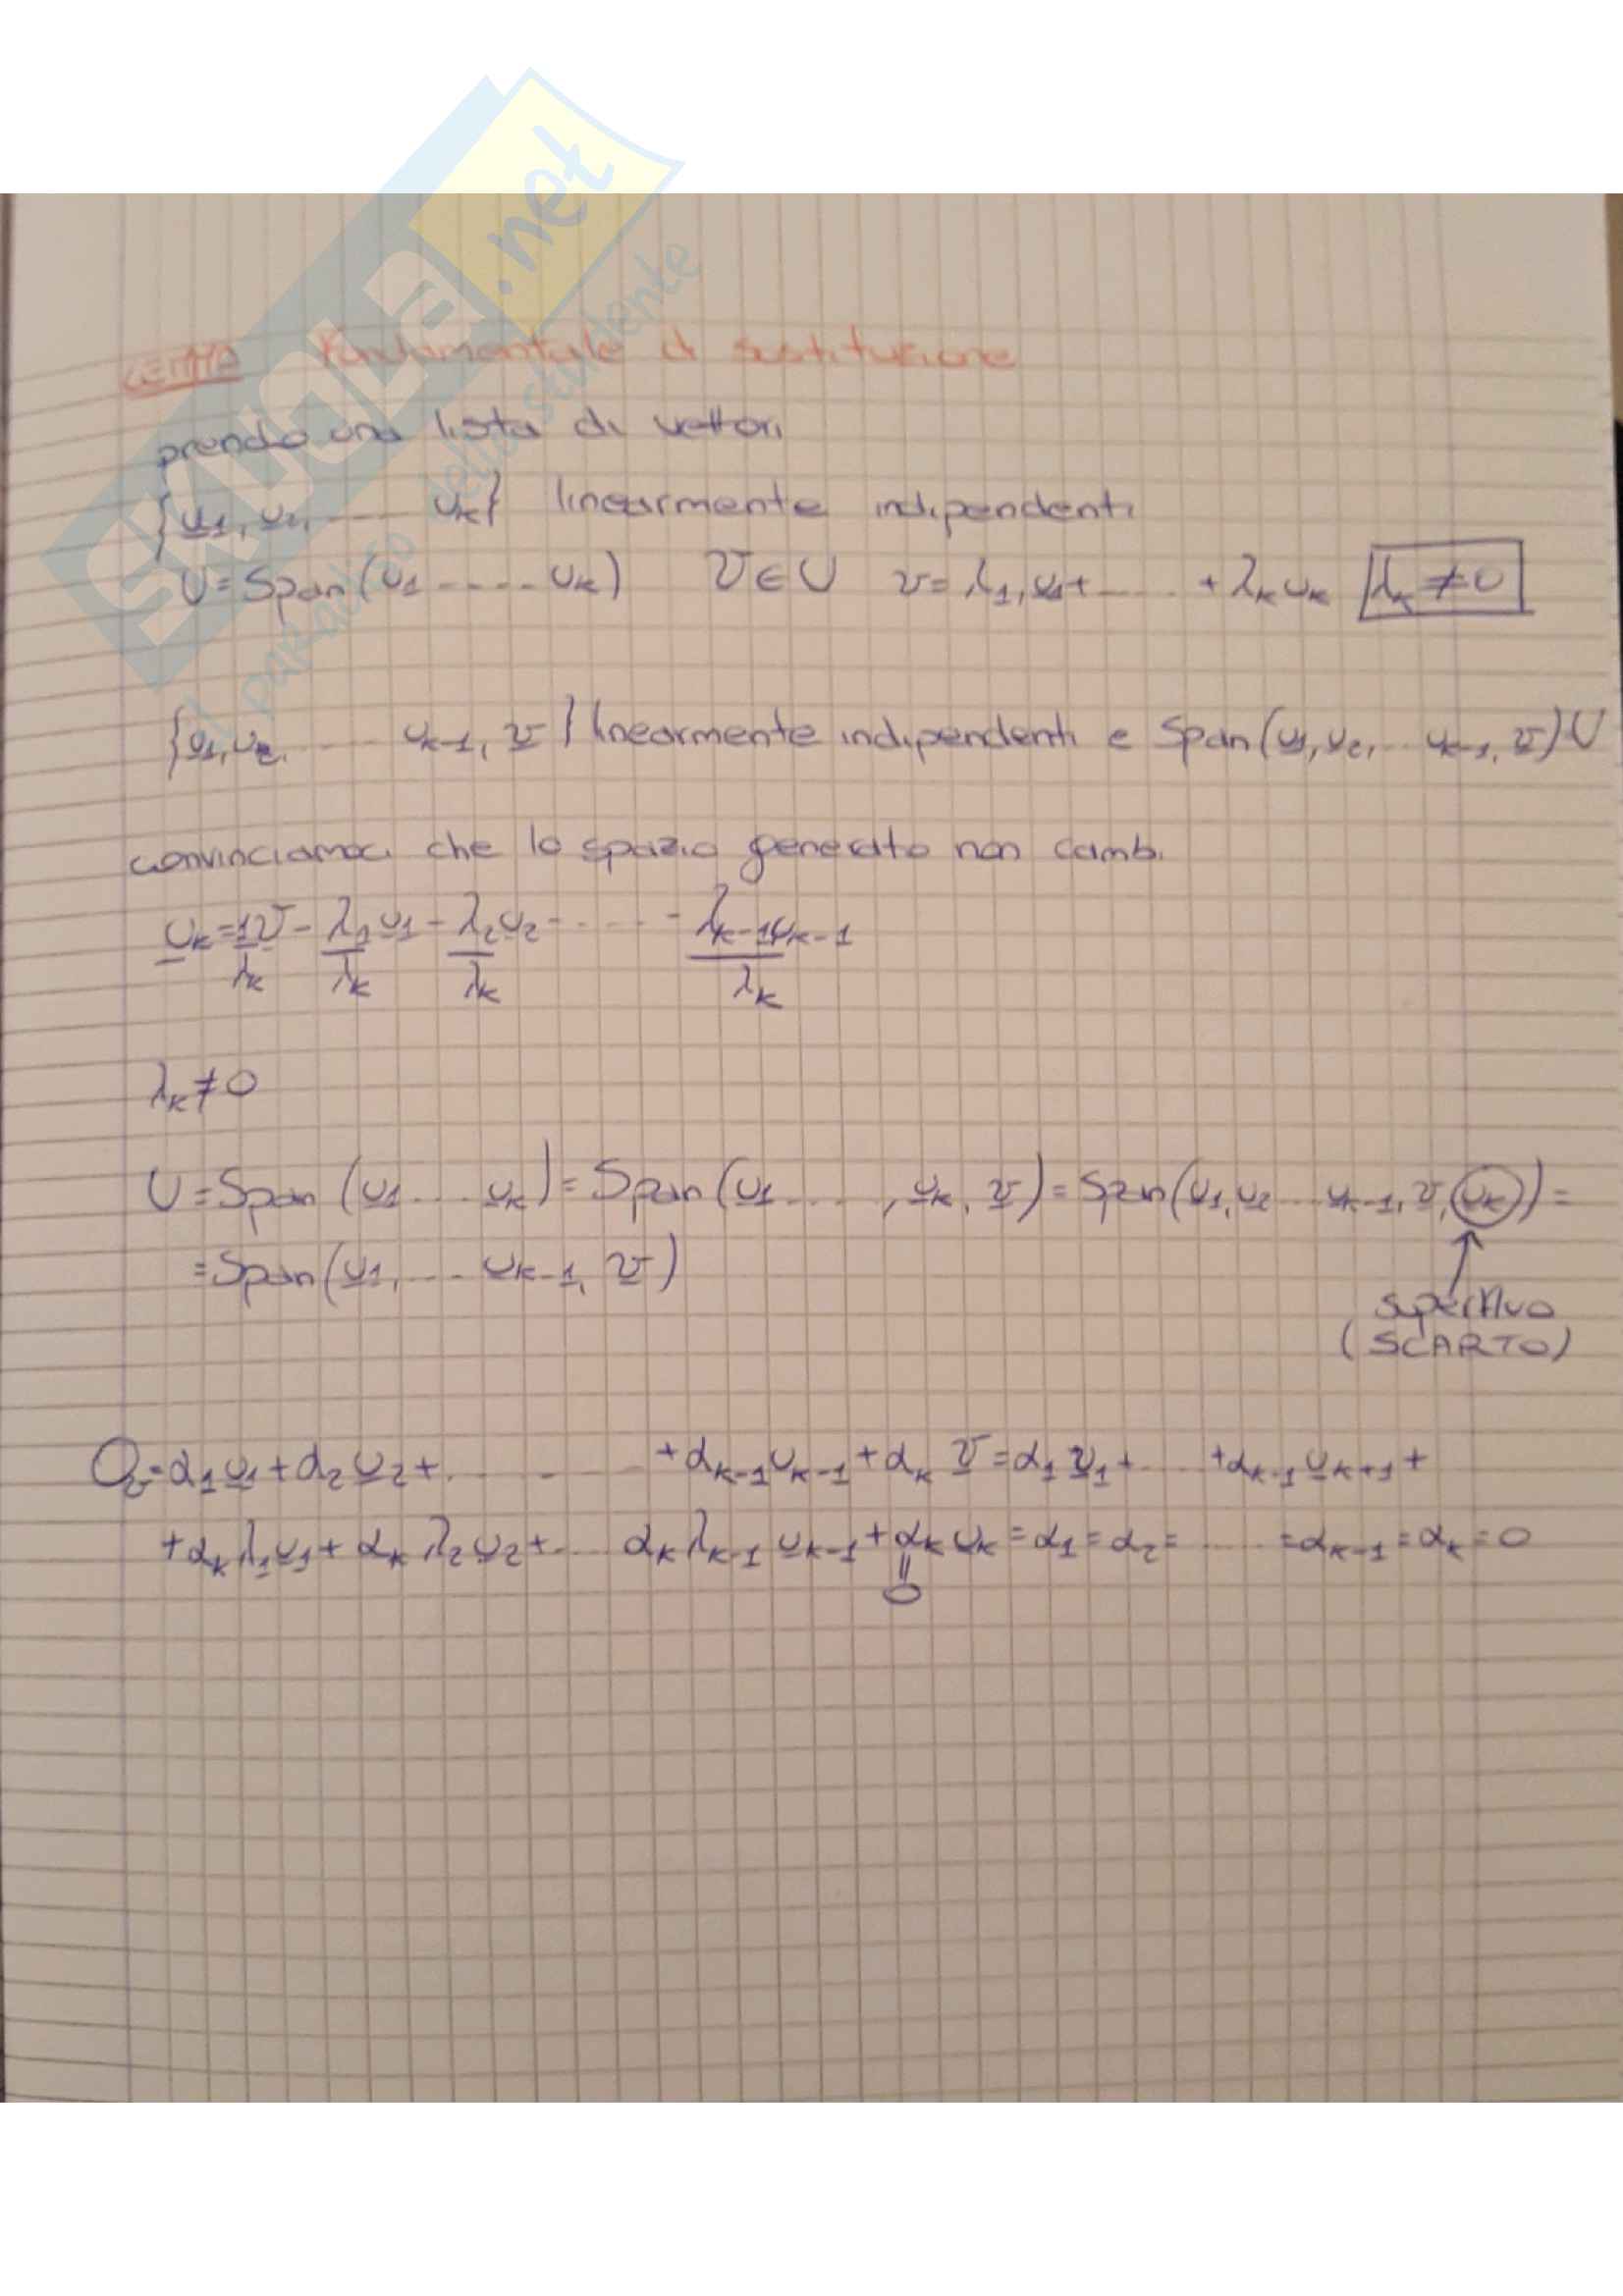 SKUOLa.net
il paradiso dello studente
LEMMA Fondamentale di sostituzione
prendo una lista di vettori
{u1, u2, ..... uk} linearmente indipendenti
U = Span (u1 ..... uk) v ∈ U v = λ1, u1 + ..... + λk uk λk ≠ 0
{u1, u2, ..... uk-1, v} linearmente indipendenti e Span (u1, u2, .. uk-1, v) U
convinciamoci che lo spazio generato non cambi
uk = 1/λk v - λ1/λk u1 - λ2/λk u2 - ..... - λk-1 uk-1/λk
λk ≠ 0
U = Span (u1 .... uk) = Span (u1 ....., uk, v) = Span (u1, u2 ... uk-1, v, uk) =
= Span (u1, ... uk-1, v)
superfluo
(SCARTO)
Ov = α1 u1 + α2 u2 + ..... + αk-1 uk-1 + αk v = α1 v1 + ... + αk-1 uk+1 +
+ αk λ1 u1 + αk λ2 u2 + ... αk λk-1 uk-1 + αk uk = α1 = α2 = ..... = αk-1 = αk = 0
=
0